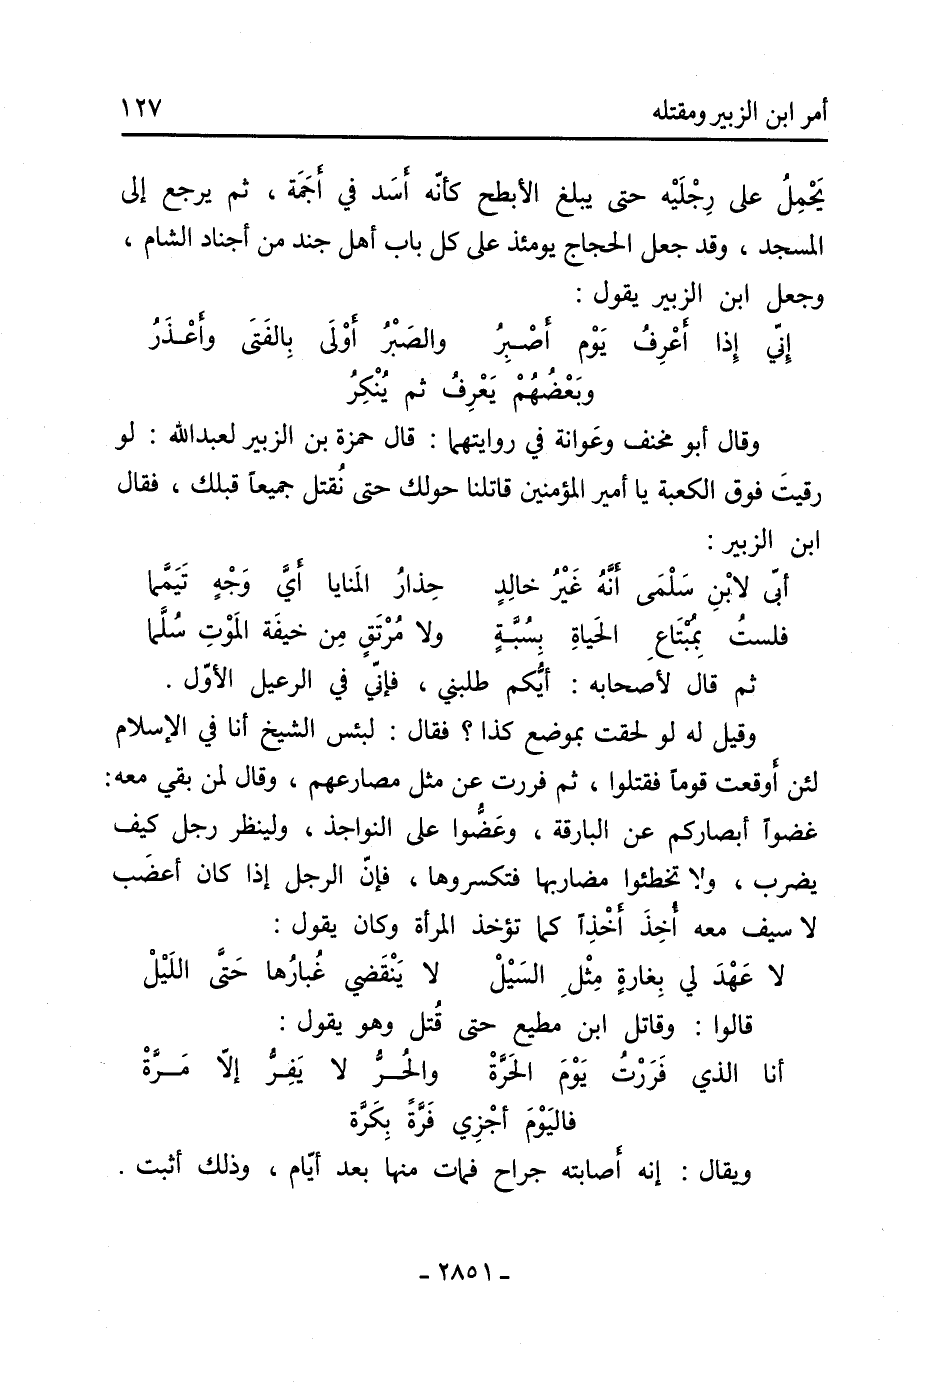 أمر ابن الزبير ومقتله ١٢٧
يَحْمِلُ على رِجْلَيْه حتى يبلغ الأبطح كأنّه أَسَد في أَجَمَة ، ثم يرجع إلى
المسجد ، وقد جعل الحجاج يومئذ على كل باب أهل جند من أجناد الشام ،
وجعل ابن الزبير يقول :
إِنّي إِذا أَعْرِفُ يَوْم أَصْبِرُ والصَبْرُ أَوْلَى بِالفَتَى وأَعْذَرُ
وبَعْضُهُمْ يَعْرِفُ ثم يُنْكِرُ
وقال أبو مخنف وعَوانة في روايتهما : قال حمزة بن الزبير لعبدالله : لو
رقيتَ فوق الكعبة يا أمير المؤمنين قاتلنا حولك حتى نُقتل جميعاً قبلك ، فقال
ابن الزبير :
أبّى لابْنِ سَلْمَى أَنَّهُ غَيْرُ خالِدٍ حِذارُ المَنايا أَيَّ وَجْهٍ تَيَمَّما
فلستُ بِمُبْتَاعِ الحَياةِ بِسُبَّةٍ ولا مُرْتَقٍ مِن خيفَة المَوْتِ سُلَّما
ثم قال لأصحابه : أيُّكم طلبني ، فإنّي في الرعيل الأوّل .
وقيل له لو لحقت بموضع كذا ؟ فقال : لبئس الشيخ أنا في الإسلام
لئن أَوقعت قوماً فقتلوا ، ثم فررت عن مثل مصارعهم ، وقال لمن بقي معه:
غضواً أبصاركم عن البارقة ، وعَضُّوا على النواجذ ، ولينظر رجل كيف
يضرب ، ولا تخطئوا مضاربها فتكسروها ، فإنّ الرجل إذا كان أعضَب
لا سيف معه أُخِذَ أَخْذِاً كما تؤخذ المرأة وكان يقول :
لا عَهْدَ لي بِغارةٍ مِثْلِ السَيْلْ لا يَنْقَضي غُبارُها حَتَّى اللَيْلْ
قالوا : وقاتل ابن مطيع حتى قُتل وهو يقول :
أنا الذي فَرَرْتُ يَوْمَ الحَرَّةْ والحُرُّ لا يَفِرُّ إلّا مَرَّةْ
فاليَوْمَ أجْزِي فَرَّةً بِكَرَّة
ويقال : إنه أَصابته جراح فمات منها بعد أيّام ، وذلك أثبت .
ـ ٢٨٥١ ـ